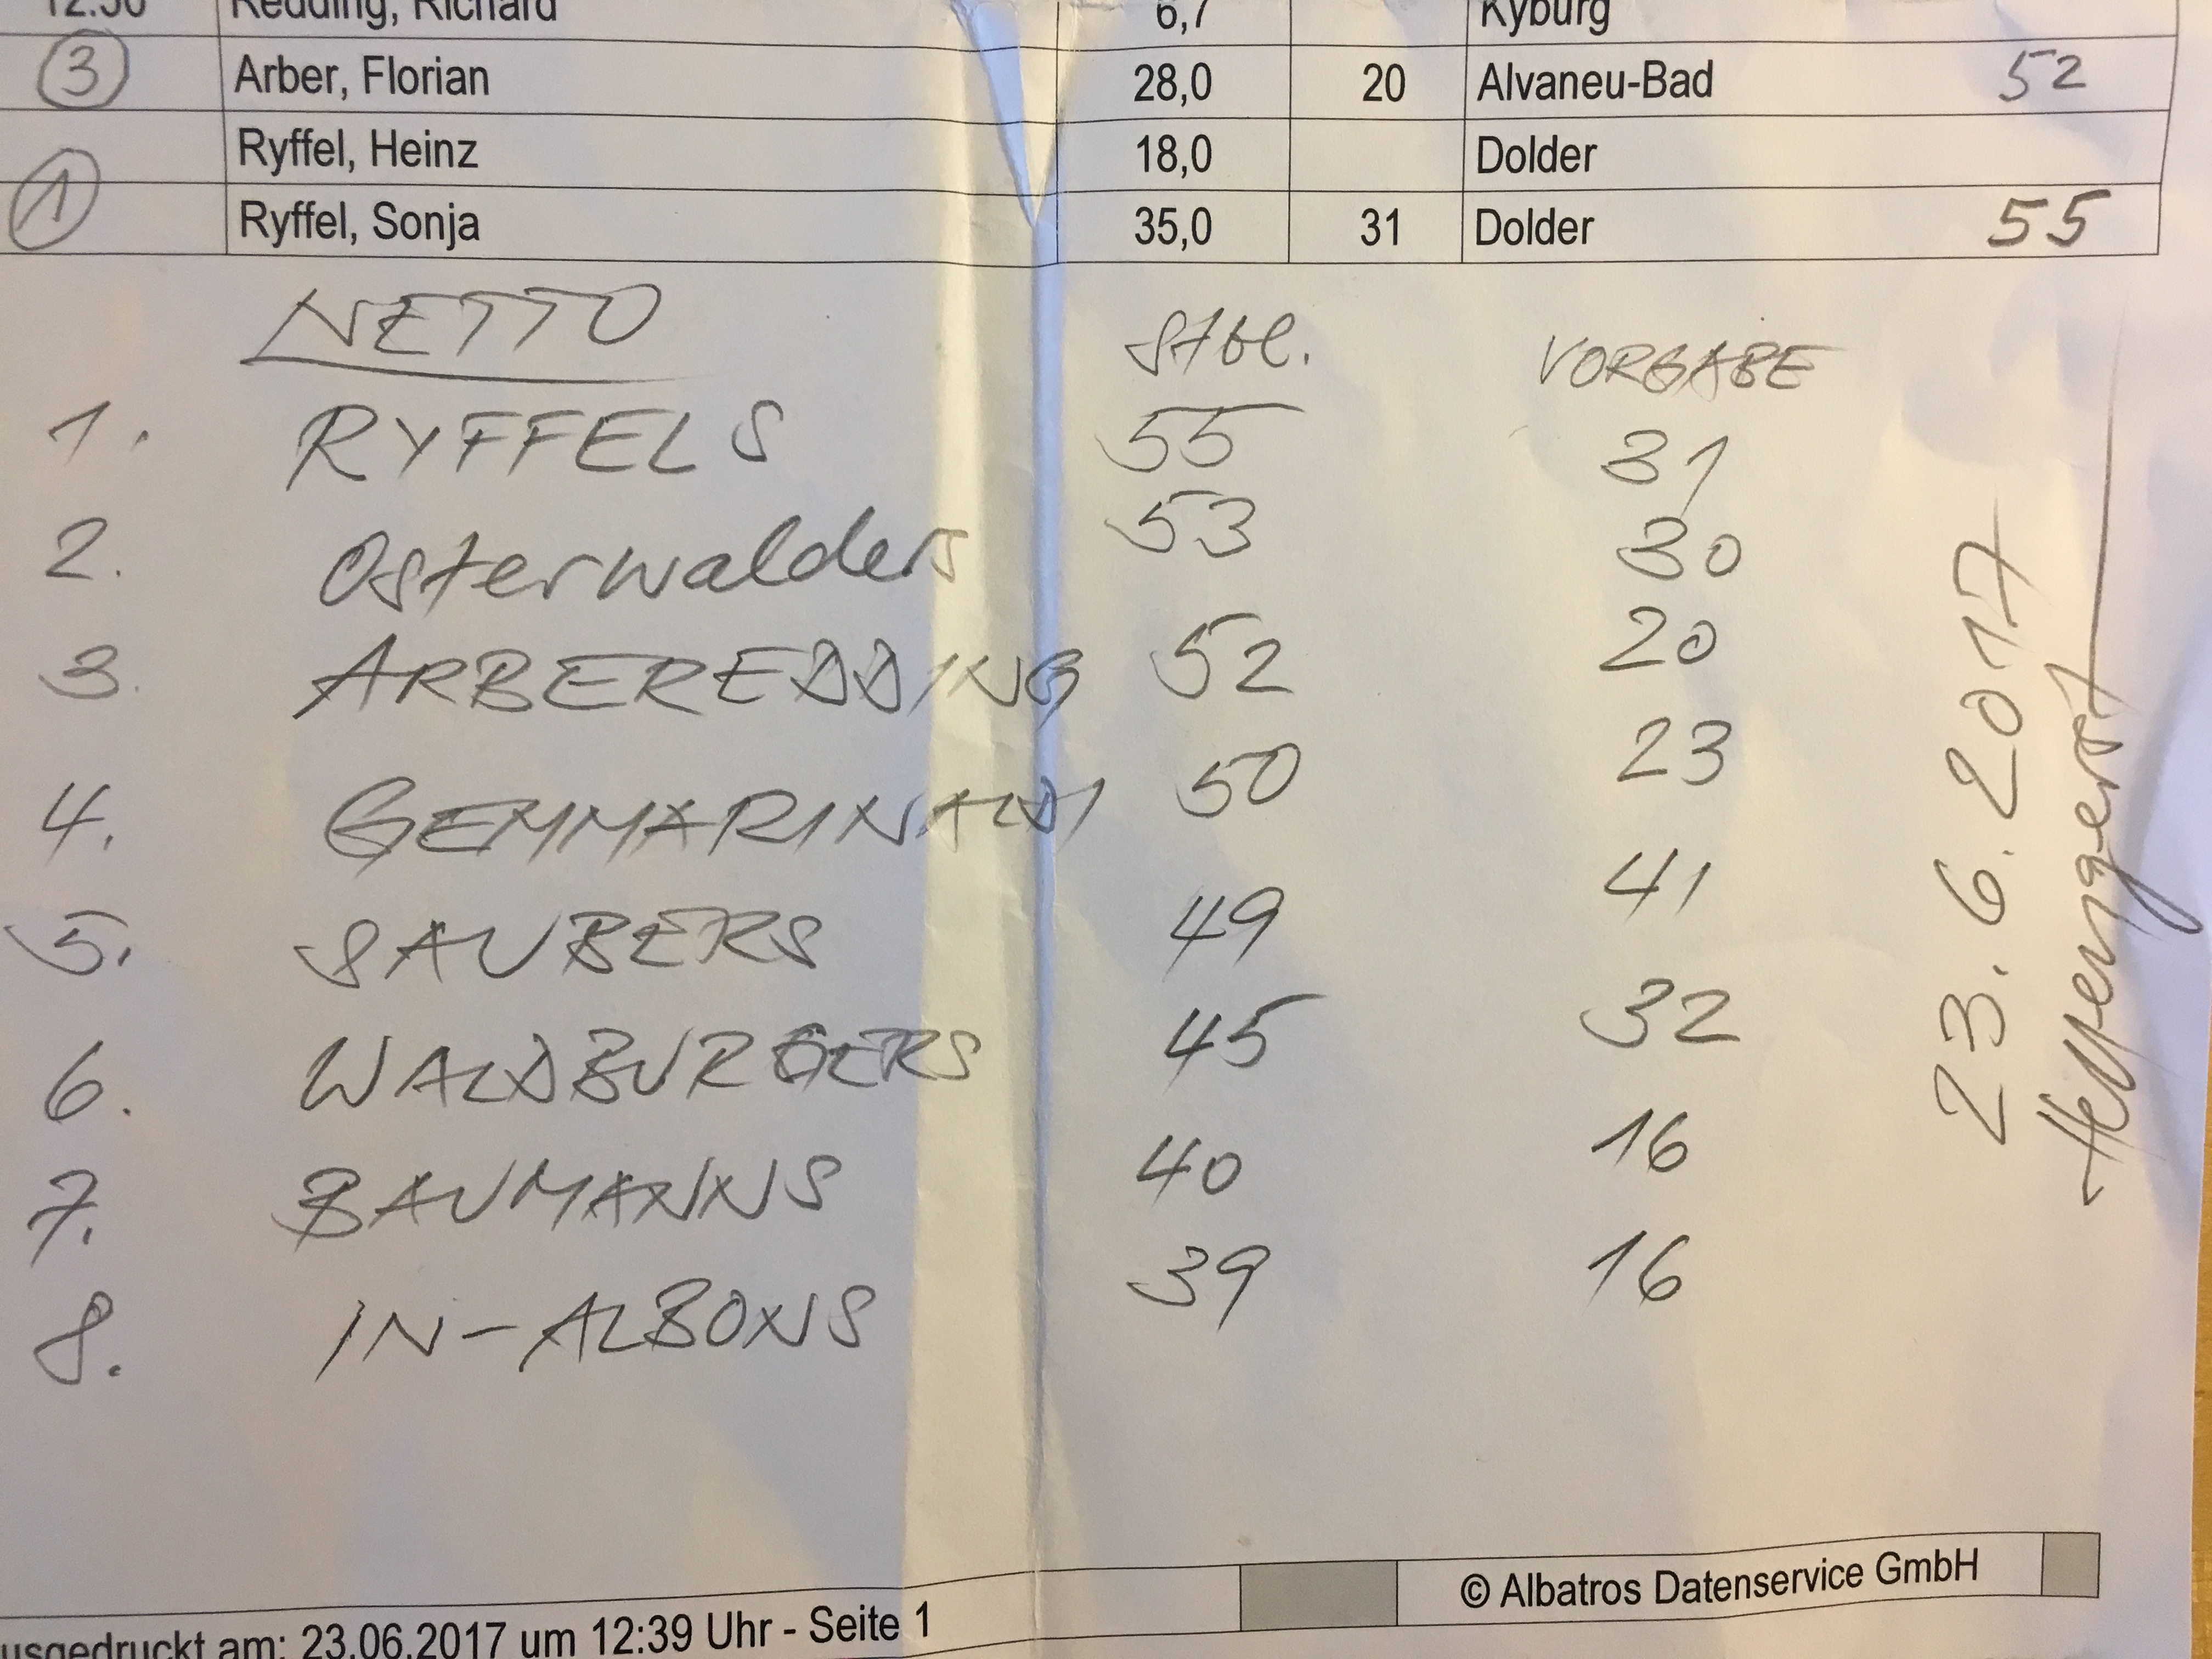 12:30 Redding, Richard 6,7 Kyburg
③ Arber, Florian 28,0 20 Alvaneu-Bad 52
Ryffel, Heinz 18,0 Dolder
① Ryffel, Sonja 35,0 31 Dolder 55
NETTO Stbl. VORGABE
1. RYFFELS 55 31
2. Osterwalders 53 30
3. ARBEREDDING 52 20
4. GEMMARINALDI 50 23
5. SAUBERS 49 41
6. WALDBURGERS 45 32
7. BAUMANNS 40 16
8. IN-ALBONS 39 16
23.6.2017
Hellengerst
© Albatros Datenservice GmbH
usgedruckt am: 23.06.2017 um 12:39 Uhr - Seite 1